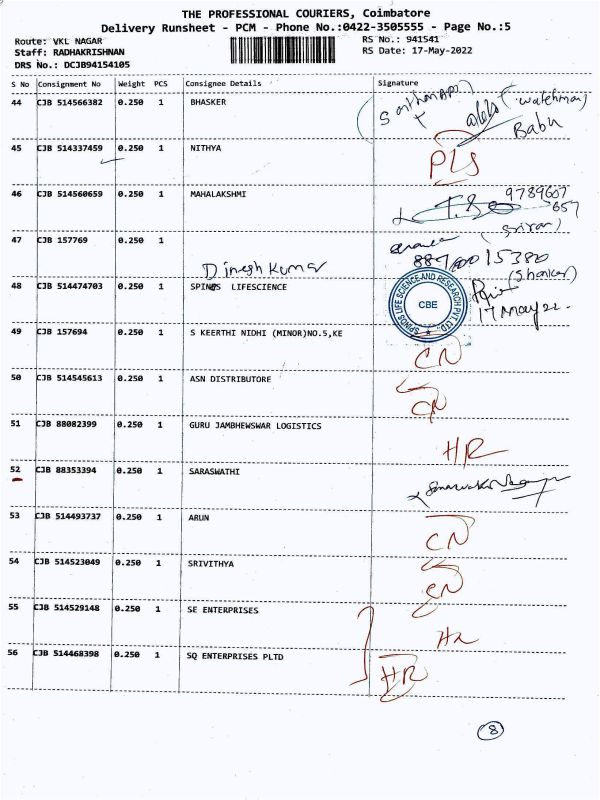 THE PROFESSIONAL COURIERS, Coimbatore
Delivery Runsheet - PCM - Phone No.:0422-3505555 - Page No.:5
Route: VKL NAGAR
RS No.: 941541
Staff: RADHAKRISHNAN
RS Date: 17-May-2022
DRS No.: DCJB94154105
S No Consignment No Weight PCS Consignee Details Signature
44 CJB 514566382 0.250 1 BHASKER
(watchman)
Babu
45 CJB 514337459 0.250 1 NITHYA
PLS
46 CJB 514560659 0.250 1 MAHALAKSHMI
9789607
657
47 CJB 157769 0.250 1
Dinesh Kumar
(Shankar)
48 CJB 514474703 0.250 1 SPINOS LIFESCIENCE
SPINOS LIFE SCIENCE AND RESEARCH PVT. LTD.
CBE
17 May 22.
49 CJB 157694 0.250 1 S KEERTHI NIDHI (MINOR)NO.5,KE
CN
50 CJB 514545613 0.250 1 ASN DISTRIBUTORE
CN
51 CJB 88082399 0.250 1 GURU JAMBHEWSWAR LOGISTICS
HR
52 CJB 88353394 0.250 1 SARASWATHI
53 CJB 514493737 0.250 1 ARUN
CN
54 CJB 514523049 0.250 1 SRIVITHYA
CN
55 CJB 514529148 0.250 1 SE ENTERPRISES
HR
56 CJB 514468398 0.250 1 SQ ENTERPRISES PLTD
HR
8